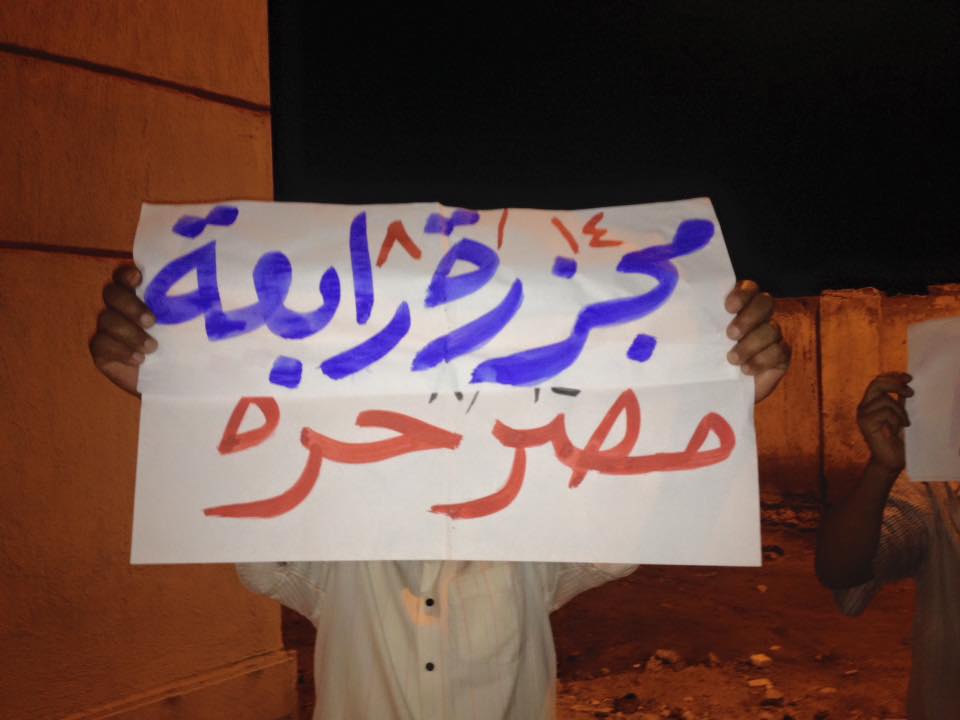 ١٤ / ٨
مجزرة رابعة
مصر حره